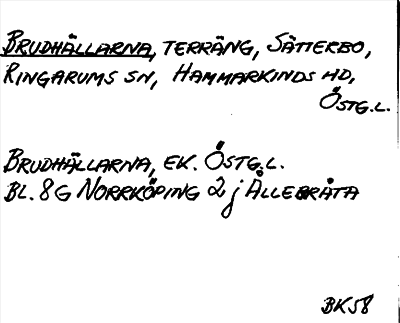 BRUDHÄLLARNA, TERRÄNG, SÄTTERBO,
RINGARUMS SN, HAMMARKINDS HD,
ÖSTG.L.
BRUDHÄLLARNA, EK. ÖSTG.L.
BL. 8G NORRKÖPING 2j ÅLLEBRÅTA
BK58